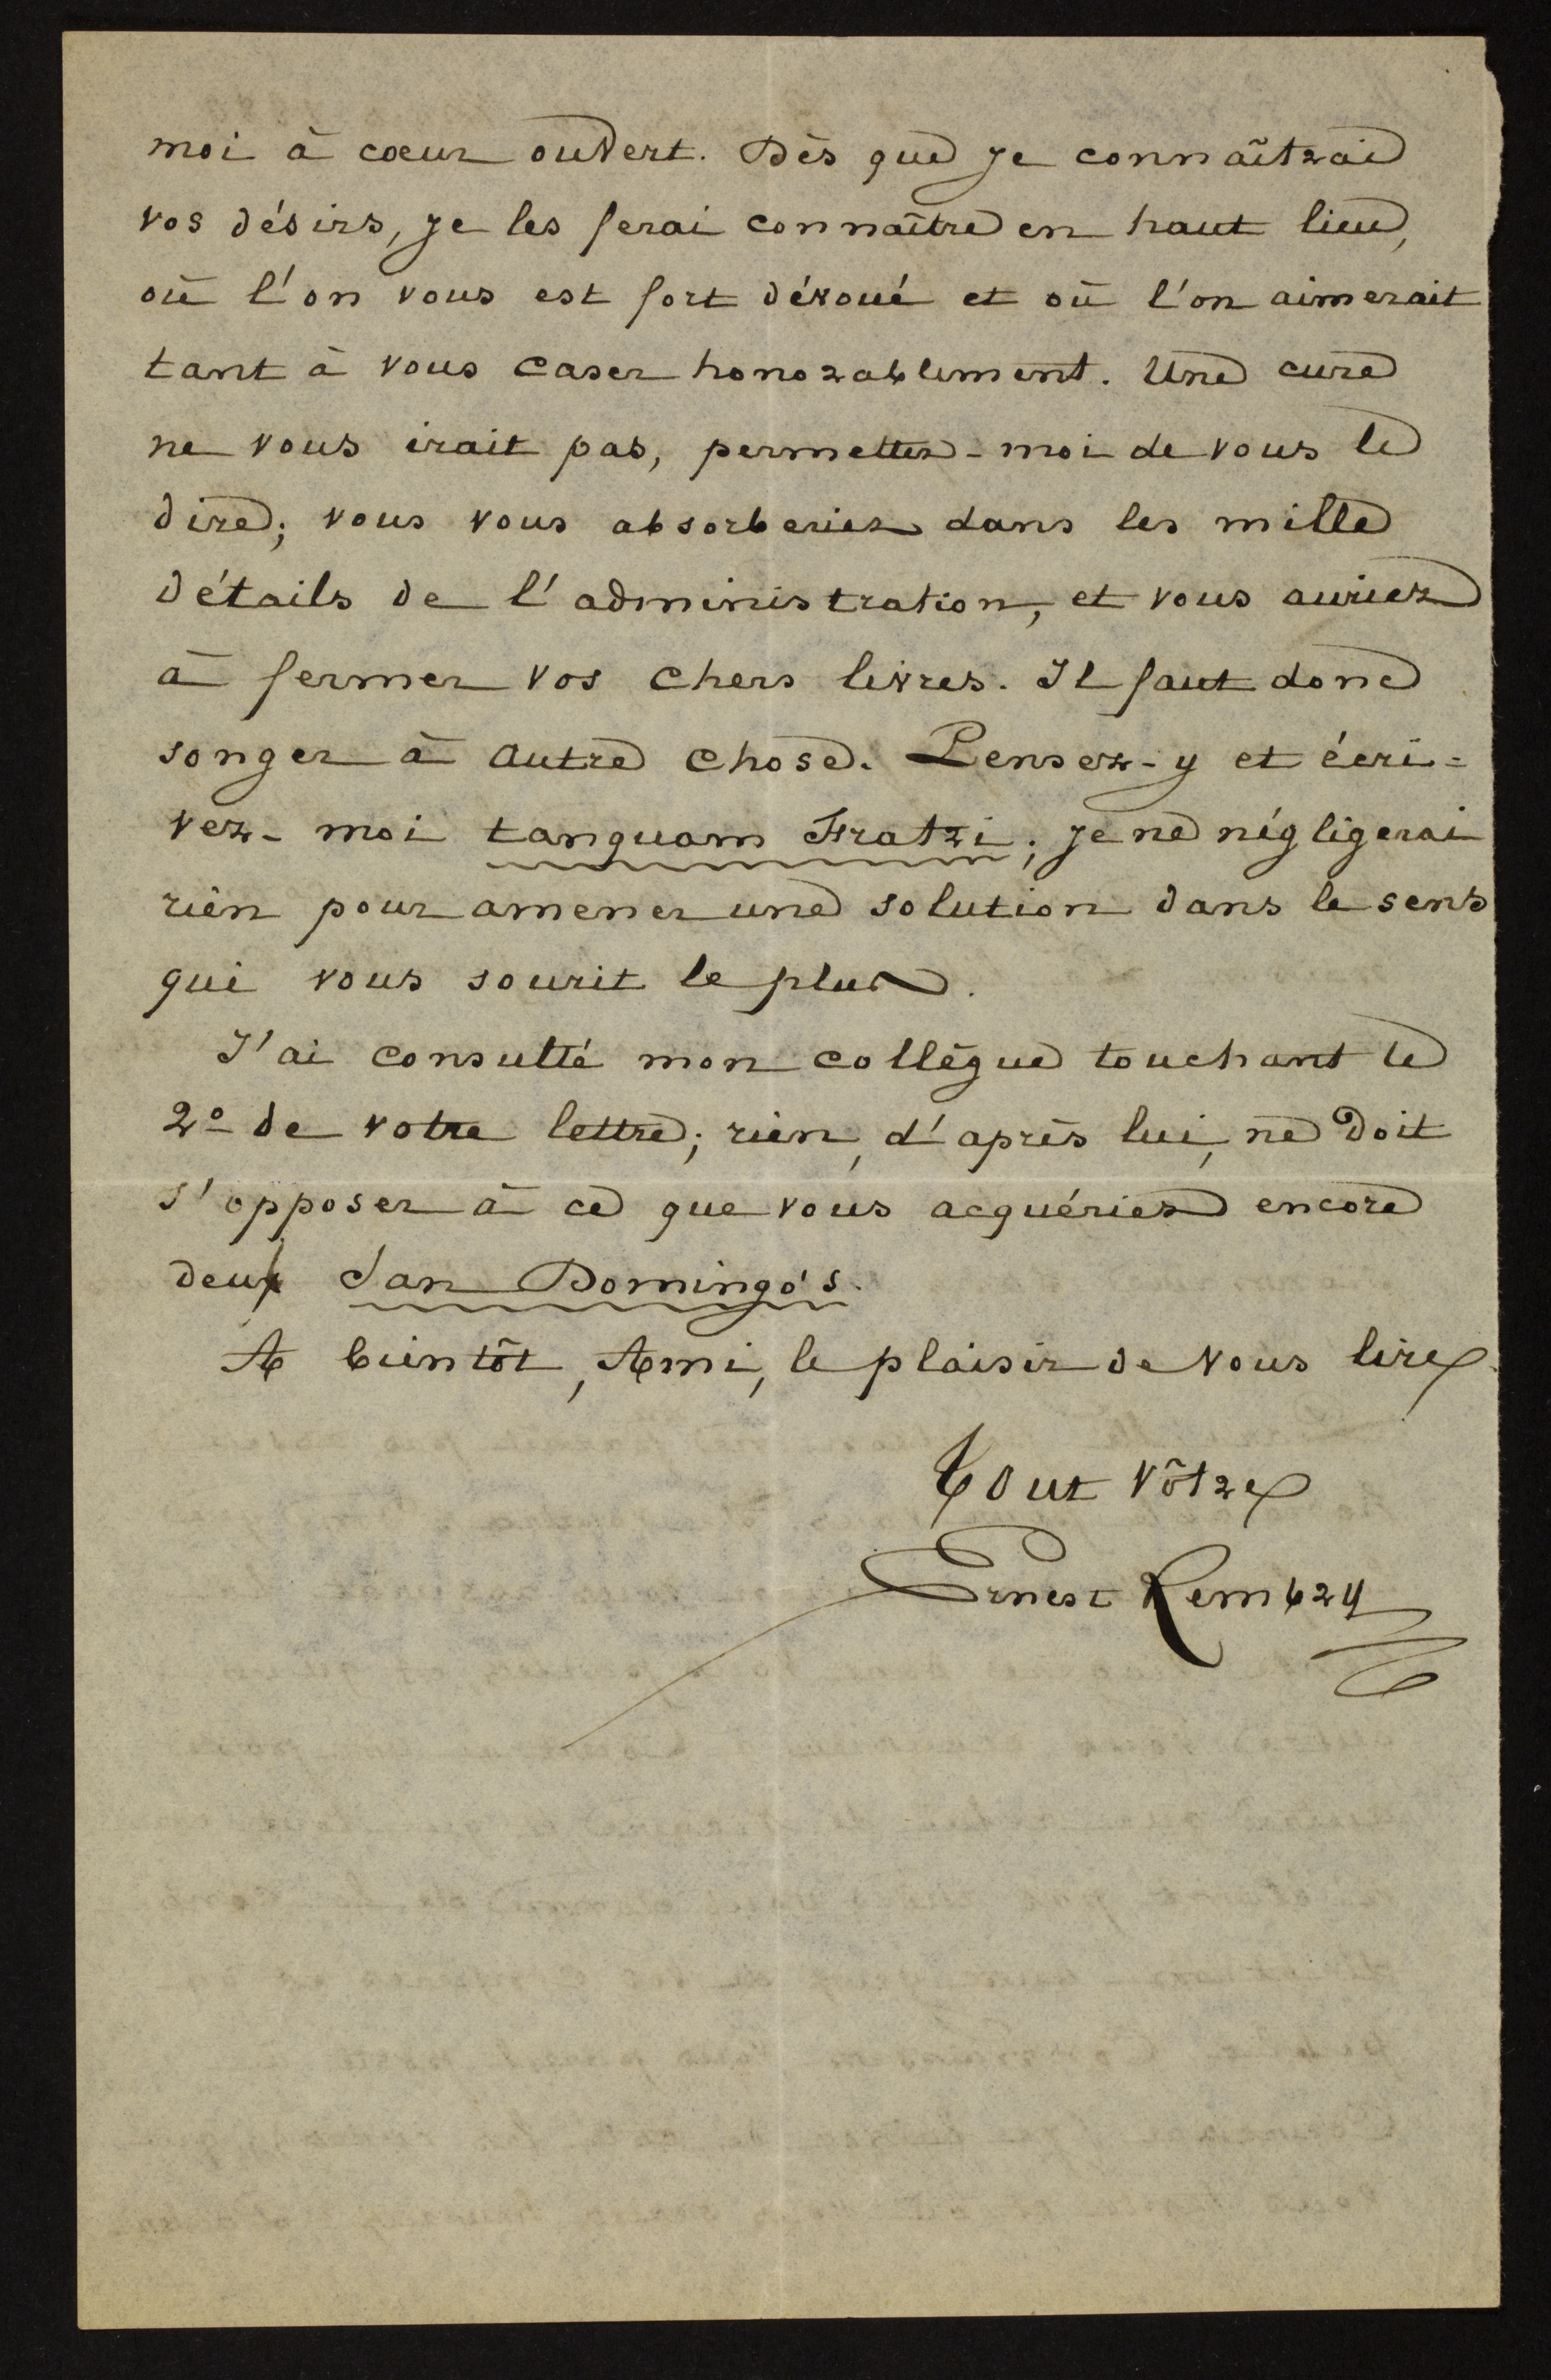 moi à cœur ouvert. Dès que je connaîtrai
vos désirs, je les ferai connaître en haut lieu,
où l'on vous est fort dévoué et où l'on aimerait
tant à vous caser honorablement. Une cure
ne vous irait pas, permettez-moi de vous le
dire; vous vous absorberiez dans les mille
détails de l'administration, et vous auriez
à fermer vos chers livres. Il faut donc
songer à autre chose. Pensez-y et écri=
vez-moi tanquam Fratri; je ne négligerai
rien pour amener une solution dans le sens
qui vous sourit le plus.
J'ai consulté mon collègue touchant le
2º de votre lettre; rien, d'après lui, ne doit
s'opposer à ce que vous acquériez encore
deux San Domingo's.
A bientôt, Ami, le plaisir de vous lire.
Tout vôtre
Ernest Rembry